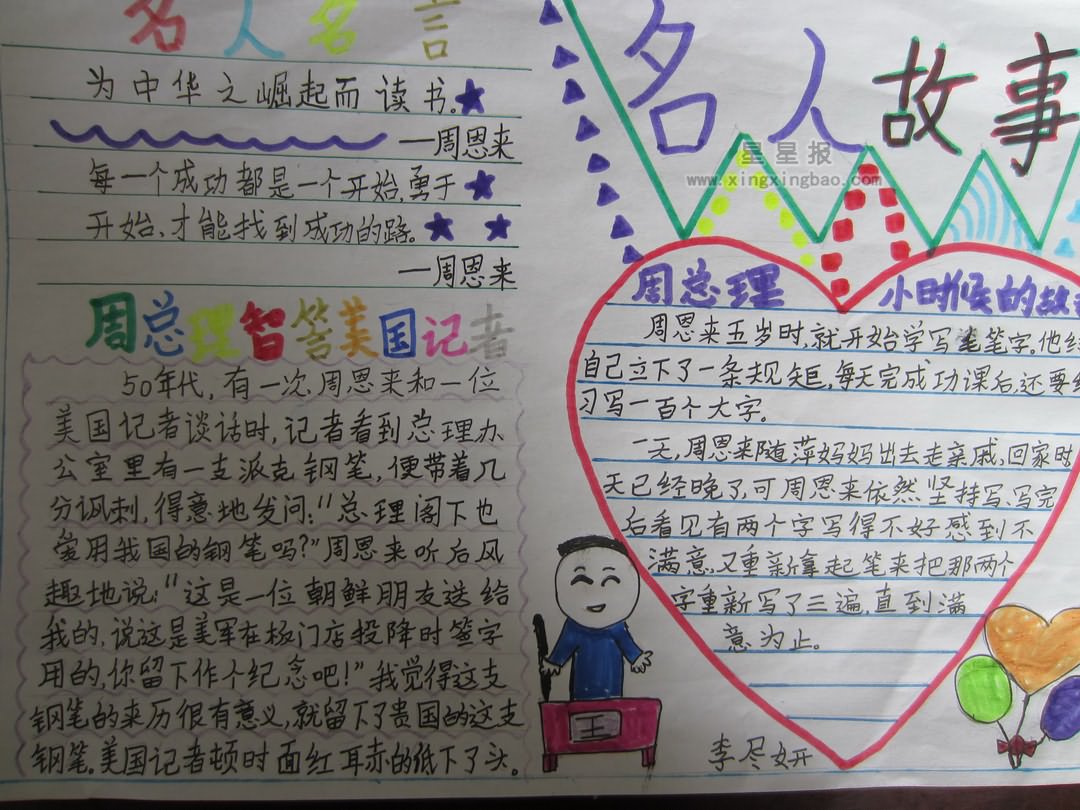 名人名言
为中华之崛起而读书。
—周恩来
每一个成功都是一个开始,勇于
开始、才能找到成功的路。
—周恩来
周总理智答美国记者
50年代,有一次,周恩来和一位
美国记者谈话时,记者看到总理办
公室里有一支派克钢笔,便带着几
分讽刺,得意地发问:"总理阁下也
爱用我国的钢笔吗?"周恩来听后风
趣地说:"这是一位朝鲜朋友送给
我的,说这是美军在板门店投降时签字
用的,你留下作个纪念吧!"我觉得这支
钢笔的来历很有意义,就留下了贵国的这支
钢笔。美国记者顿时面红耳赤的低下了头。
名人故事
星星报
www.xingxingbao.com
周总理 小时候的故
周恩来五岁时,就开始学写笔字。他
自己立下了一条规矩,每天完成功课后,还要
习写一百个大字。
一天,周恩来随萍妈妈出去走亲戚,回家时
天已经晚了,可周恩来依然坚持写、写完
后看见有两个字写得不好感到不
满意,又重新拿起笔来把那两个
字重新写了三遍,直到满
意为止。
王
李尽妍